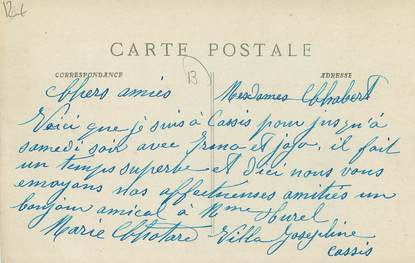 CARTE POSTALE
CORRESPONDANCE
ADRESSE
13
Chers amies
Mesdames Chabert
Voici que je suis à Cassis pour jusqu'à
samedi soir avec Irma et jojo, il fait
un temps superbe et d'ici nous vous
envoyons nos affectueuses amitiés un
bonjour amical à Mme Hurel
Marie - Villa Joséphine
Cassis